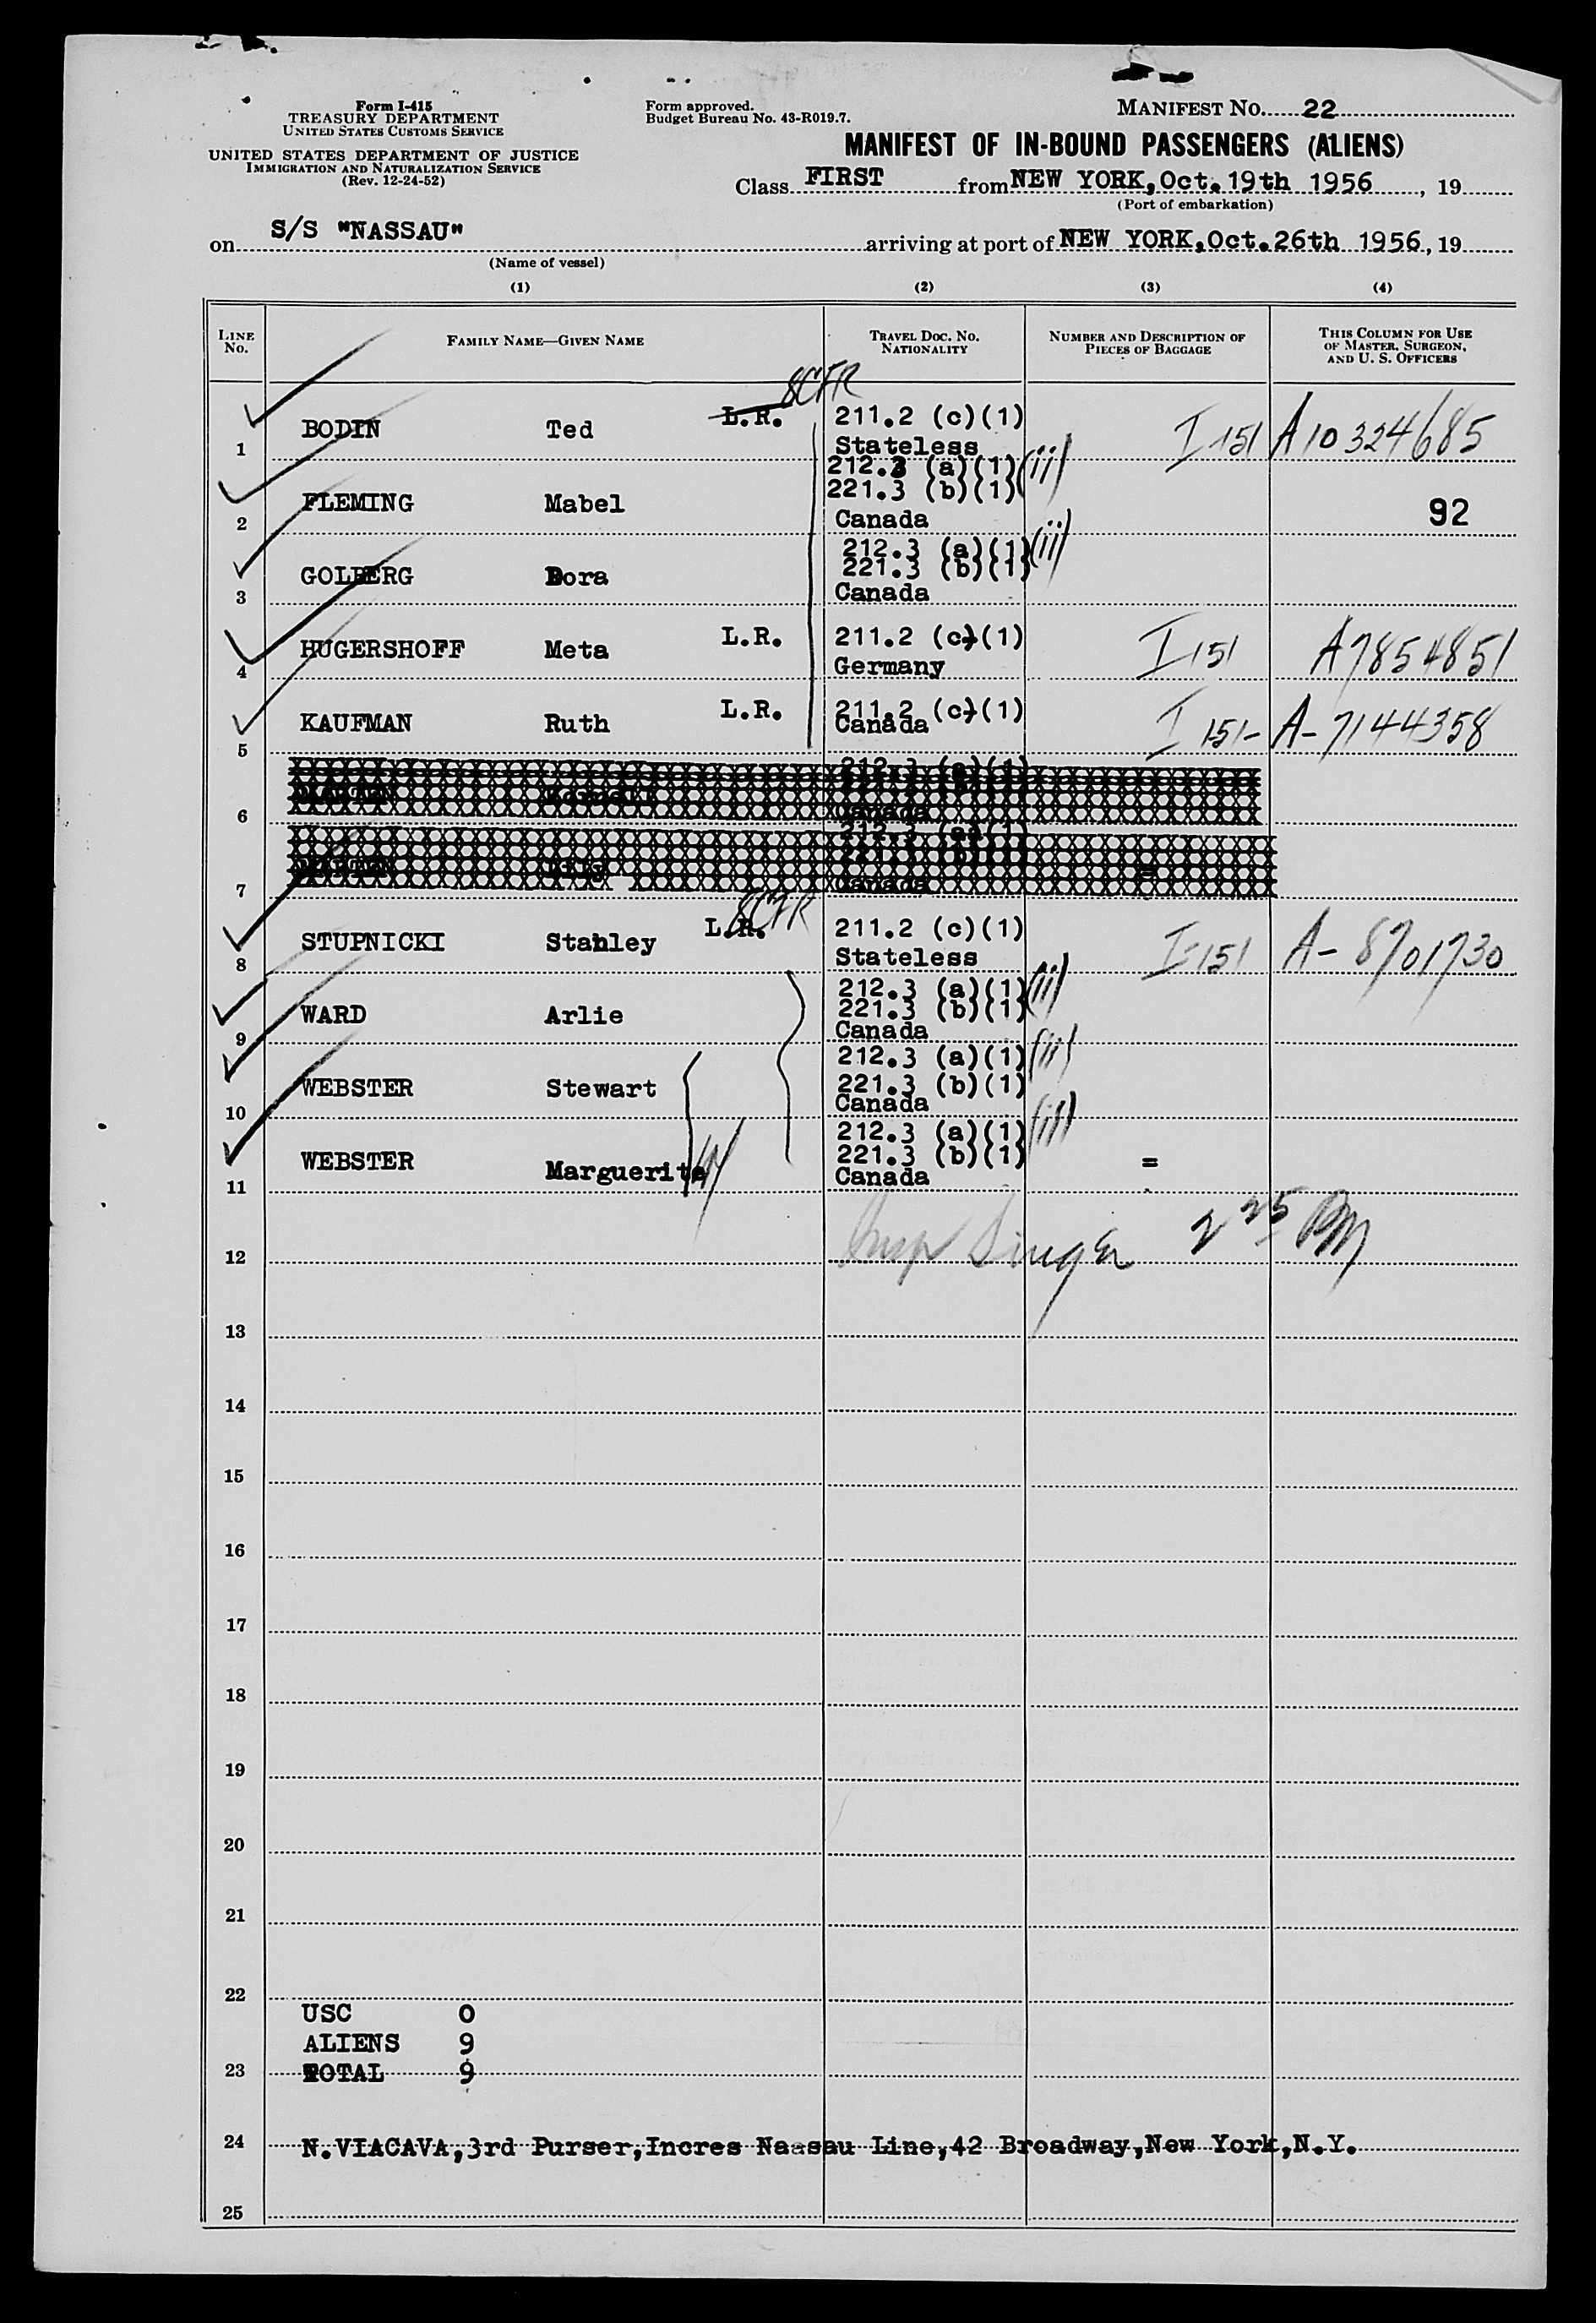 Form I-415
TREASURY DEPARTMENT
UNITED STATES CUSTOMS SERVICE
UNITED STATES DEPARTMENT OF JUSTICE
IMMIGRATION AND NATURALIZATION SERVICE
(Rev. 12-24-52)
Form approved.
Budget Bureau No. 43-R019.7.
MANIFEST NO. 22
MANIFEST OF IN-BOUND PASSENGERS (ALIENS)
Class FIRST from NEW YORK,Oct.19th 1956, 19
(Port of embarkation)
on S/S "NASSAU" arriving at port of NEW YORK,Oct.26th 1956, 19
(Name of vessel)
(1) (2) (3) (4)
LINE NO. FAMILY NAME—GIVEN NAME TRAVEL DOC. NO. NATIONALITY NUMBER AND DESCRIPTION OF PIECES OF BAGGAGE THIS COLUMN FOR USE OF MASTER, SURGEON, AND U. S. OFFICERS
8CFR
1 BODIN Ted L.R. 211.2 (c)(1) I 151 A10324685
Stateless
212.3 (a)(1)(ii)
221.3 (b)(1)
2 FLEMING Mabel Canada 92
212.3 (a)(1)(ii)
221.3 (b)(1)
3 GOLBERG Dora Canada
4 HUGERSHOFF Meta L.R. 211.2 (c)(1) I 151 A7854851
Germany
5 KAUFMAN Ruth L.R. 211.2 (c)(1) I 151- A-7144358
Canada
212.3 (a)(1)
6 Canada
212.3 (a)(1)
7 Canada
8CFR
8 STUPNICKI Stanley L.R. 211.2 (c)(1) I-151 A-8701730
Stateless
212.3 (a)(1)(ii)
221.3 (b)(1)
9 WARD Arlie Canada
212.3 (a)(1)(ii)
10 WEBSTER Stewart 221.3 (b)(1)
Canada
212.3 (a)(1)(ii)
221.3 (b)(1)
11 WEBSTER Marguerite Canada =
12 Insp Singer 2 25 PM
13
14
15
16
17
18
19
20
21
22
USC 0
ALIENS 9
23 TOTAL 9
24 N.VIACAVA,3rd Purser,Incres Nassau Line,42 Broadway,New York,N.Y.
25